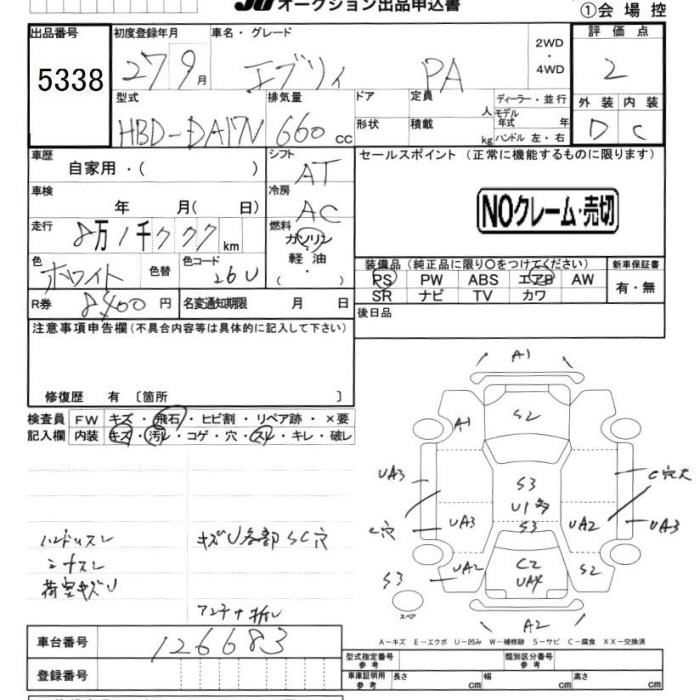 JU オークション出品申込書
①会 場 控
出品番号 5338
初度登録年月 27 9月
車名・グレード エブリィ PA
2WD・4WD
評価点 2
型式 HBD-DA17V
排気量 660cc
ドア
定員 人
ディーラー・並行
形状
積載 kg
モデル年式 年
ハンドル 左・右
外装 内装
D C
車歴 自家用・( )
シフト AT
セールスポイント(正常に機能するものに限ります)
車検 年 月( 日)
冷房 AC
NOクレーム・売切
走行 8万1千777km
燃料 ガソリン
軽油・
( )
色 ホワイト 色替
色コード 26U
装備品(純正品に限り○をつけてください)
PS PW ABS エアB AW
SR ナビ TV カワ
新車保証書
有・無
R券 8400円
名変通知期限 月 日
後日品
注意事項申告欄(不具合内容等は具体的に記入して下さい)
修復歴 有 〔箇所 〕
検査員記入欄
FW キズ・飛石・ヒビ割・リペア跡・×要
内装 キズ・汚レ・コゲ・穴・スレ・キレ・破レ
ハンドルスレ
シートスレ
荷室キズU
キズU各部SC穴
アンテナ折レ
A1
A1 S2
UA3 S3 C穴大
U1多
C穴 UA3 S3 UA2 UA3
S3 UA2 C2 S2
UA4
スペア
A2
A-キズ E-エクボ U-凹み W-補修跡 S-サビ C-腐食 XX-交換済
車台番号 126683
型式指定番号 参考
類別区分番号 参考
登録番号
車庫証明用 参考
長さ cm 幅 cm 高さ cm